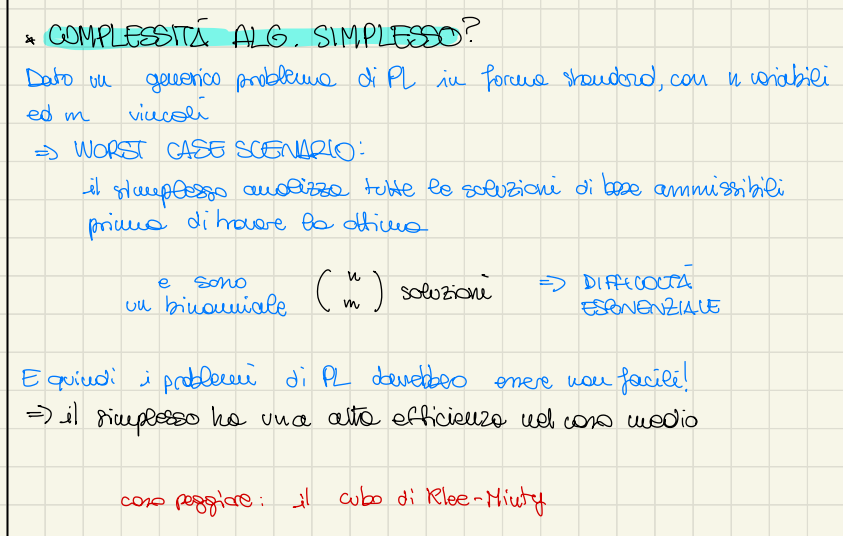 * COMPLESSITÀ ALG. SIMPLESSO?
Dato un generico problema di PL in forma standard, con n variabili
ed m vincoli
⇒ WORST CASE SCENARIO:
il simplesso analizza tutte le soluzioni di base ammissibili
prima di trovare la ottima
e sono
un binomiale (n m) soluzioni ⇒ DIFFICOLTÀ
ESPONENZIALE
E quindi i problemi di PL dovrebbero essere non facili!
⇒ il simplesso ha una alta efficienza nel caso medio
caso peggiore: il cubo di Klee-Minty